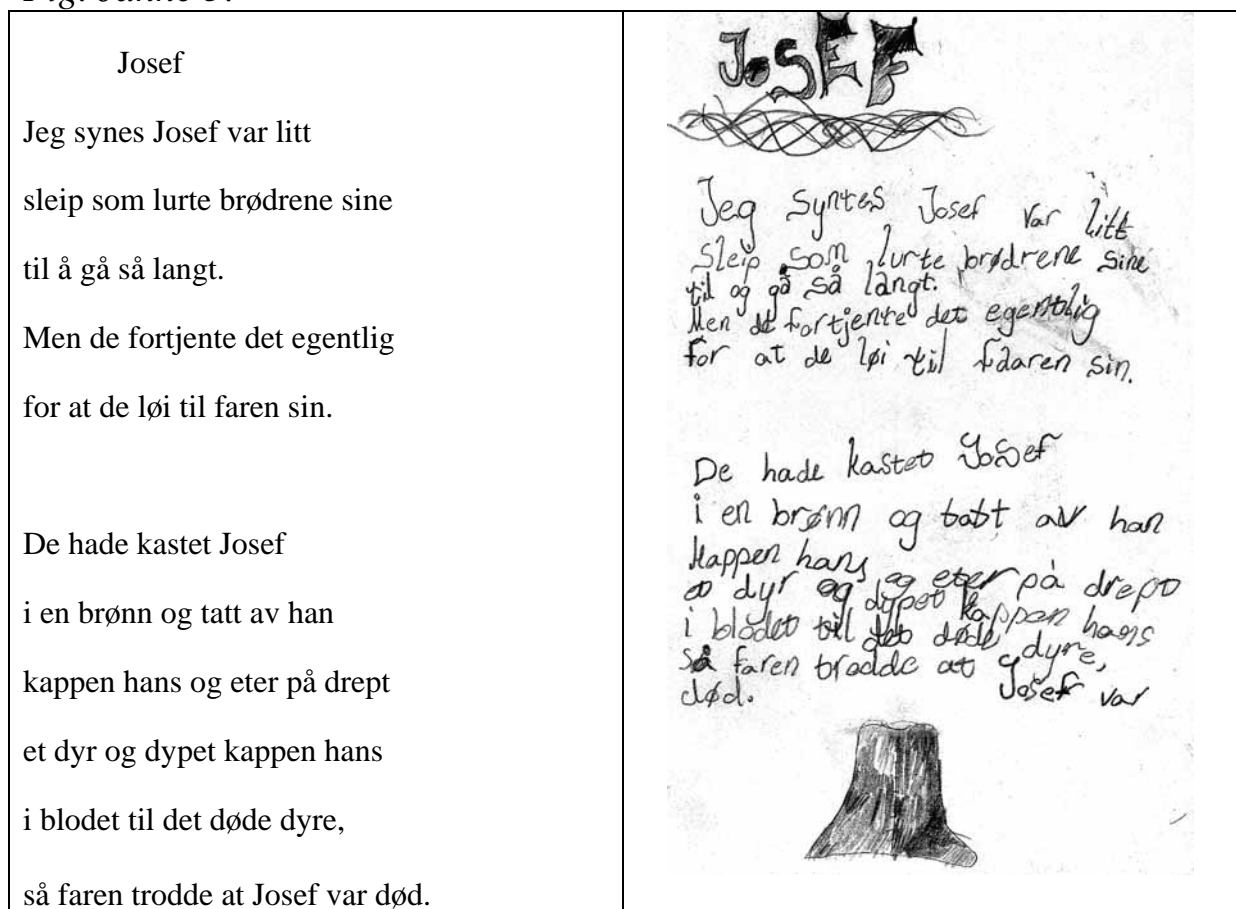 Josef
Jeg synes Josef var litt
sleip som lurte brødrene sine
til å gå så langt.
Men de fortjente det egentlig
for at de løi til faren sin.
De hade kastet Josef
i en brønn og tatt av han
kappen hans og eter på drept
et dyr og dypet kappen hans
i blodet til det døde dyre,
så faren trodde at Josef var død.
JOSEF
Jeg syntes Josef var litt
sleip som lurte brødrene sine
til og gå så langt.
Men de fortjente det egentlig
for at de løi til fdaren sin.
De hade kastet Josef
i en brønn og tatt av han
kappen hans og eter på drept
et dyr og dypet kappen hans
i blodet til det døde dyre,
så faren trodde at Josef var
død.